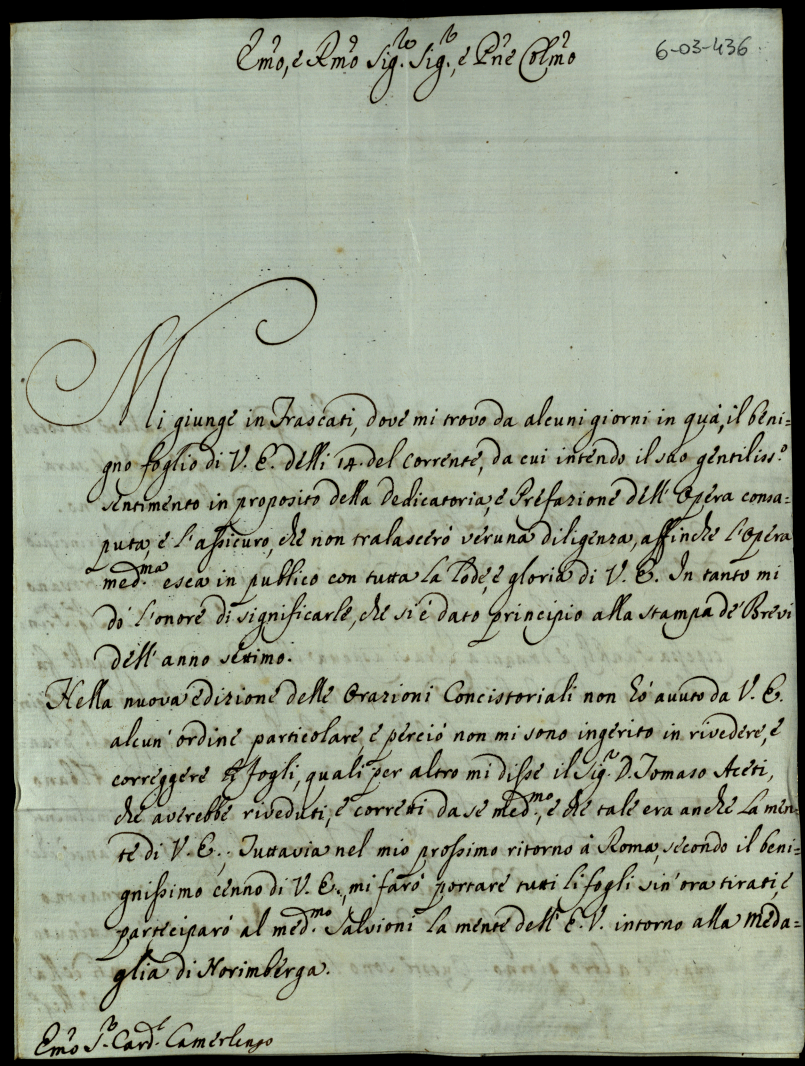 Em̃o, e Rm̃o Sig.re Sig.r, e Pñe Colm̃o
6-03-436
Mi giunge in Frascati, dove mi trovo da alcuni giorni in quà, il beni=
gno foglio di V. E. delli 14. del corrente, da cui intendo il suo gentiliss.o
sentimento in proposito della Dedicatoria, e Prefazione dell' Opera consa=
puta, e l'assicuro, che non tralascerò veruna diligenza, affinche l'Opera
med.ma esca in publico con tutta la lode, e gloria di V. E. In tanto mi
dò l'onore di significarle, che si è dato principio alla stampa de' Brevi
dell' anno settimo.
Nella nuova edizione delle Orazioni Concistoriali non hò avuto da V. E.
alcun' ordine particolare, e perciò non mi sono ingerito in rivedere, e
correggere fogli, quali per altro mi disse il Sig.r D. Tomaso Aceti,
che averebbe riveduti, e corretti da se med.mo, e che tale era anche la men=
te di V. E., Tuttavia nel mio prossimo ritorno à Roma, secondo il beni=
gnissimo cenno di V. E., mi farò portare tutti li fogli sin' ora tirati, e
parteciparò al med.mo Salvioni la mente dell' E. V. intorno alla meda=
glia di Norimberga.
Em̃o S.r Card.l Camerlengo